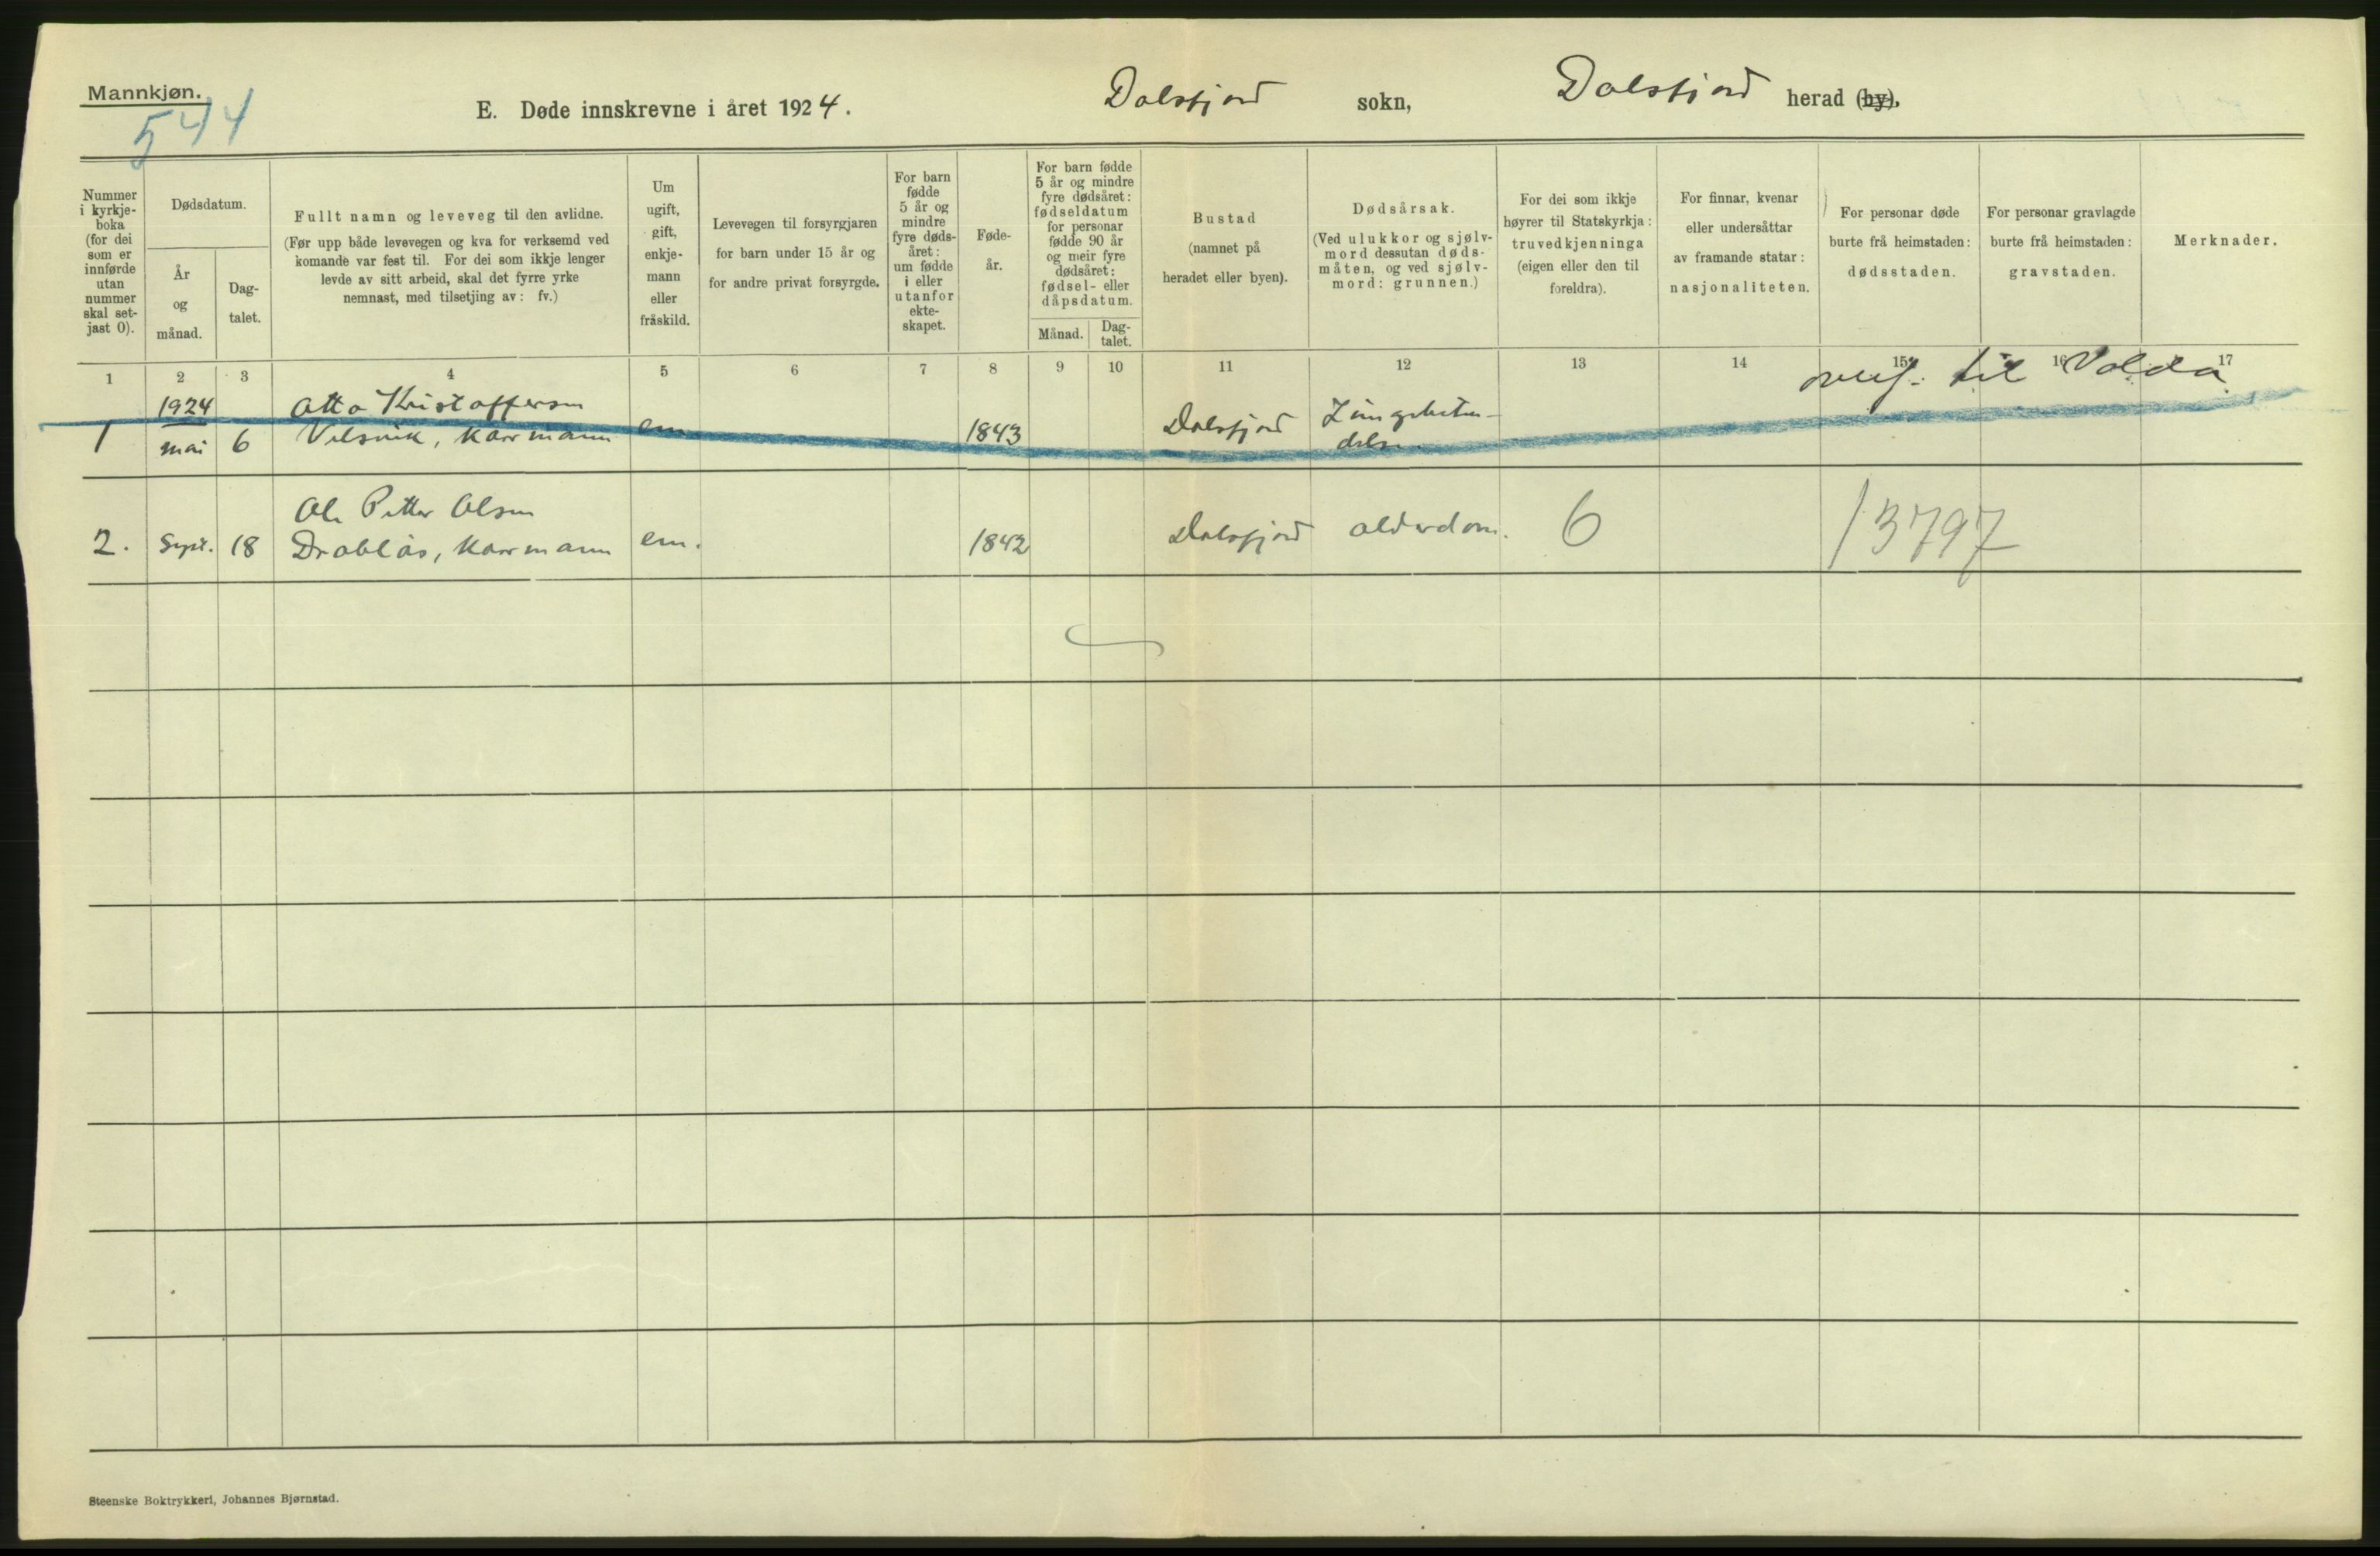 Mannkjøn.
544
E. Døde innskrevne i året 1924.
Dalsfjord sokn,
Dalsfjord herad (by).
Nummer i kyrkje-boka (for dei som er innførde utan nummer skal set-jast 0).
Dødsdatum.
År og månad.
Dag-talet.
Fullt namn og leveveg til den avlidne.
(Før upp både levevegen og kva for verksemd ved
komande var fest til. For dei som ikkje lenger
levde av sitt arbeid, skal det fyrre yrke
nemnast, med tilsetjing av: fv.)
Um ugift, gift, enkje-mann eller fråskild.
Levevegen til forsyrgjaren
for barn under 15 år og
for andre privat forsyrgde.
For barn fødde 5 år og mindre fyre døds-året: um fødde i eller utanfor ekte-skapet.
Føde-år.
For barn fødde 5 år og mindre fyre dødsåret: fødseldatum for personar fødde 90 år og meir fyre dødsåret: fødsel- eller dåpsdatum.
Månad.
Dag-talet.
Bustad
(namnet på
heradet eller byen).
Dødsårsak.
(Ved ulukkor og sjølv-
mord dessutan døds-
måten, og ved sjølv-
mord: grunnen.)
For dei som ikkje
høyrer til Statskyrkja:
truvedkjenninga
(eigen eller den til
foreldra).
For finnar, kvenar
eller undersåttar
av framande statar:
nasjonaliteten.
For personar døde
burte frå heimstaden:
dødsstaden.
For personar gravlagde
burte frå heimstaden:
gravstaden.
Merknader.
1 2 3 4 5 6 7 8 9 10 11 12 13 14 15 16 17
overf. til Volda
1924 Otto Kristoffersen
1 mai 6 Velsvik, kårmann em 1843 Dalsfjord Lungebeten-
delse.
Ole Petter Olsen
2. Sept. 18 Drabløs, kårmann em. 1842 Dalsfjord alderdom. 6 13797
Steenske Boktrykkeri, Johannes Bjørnstad.